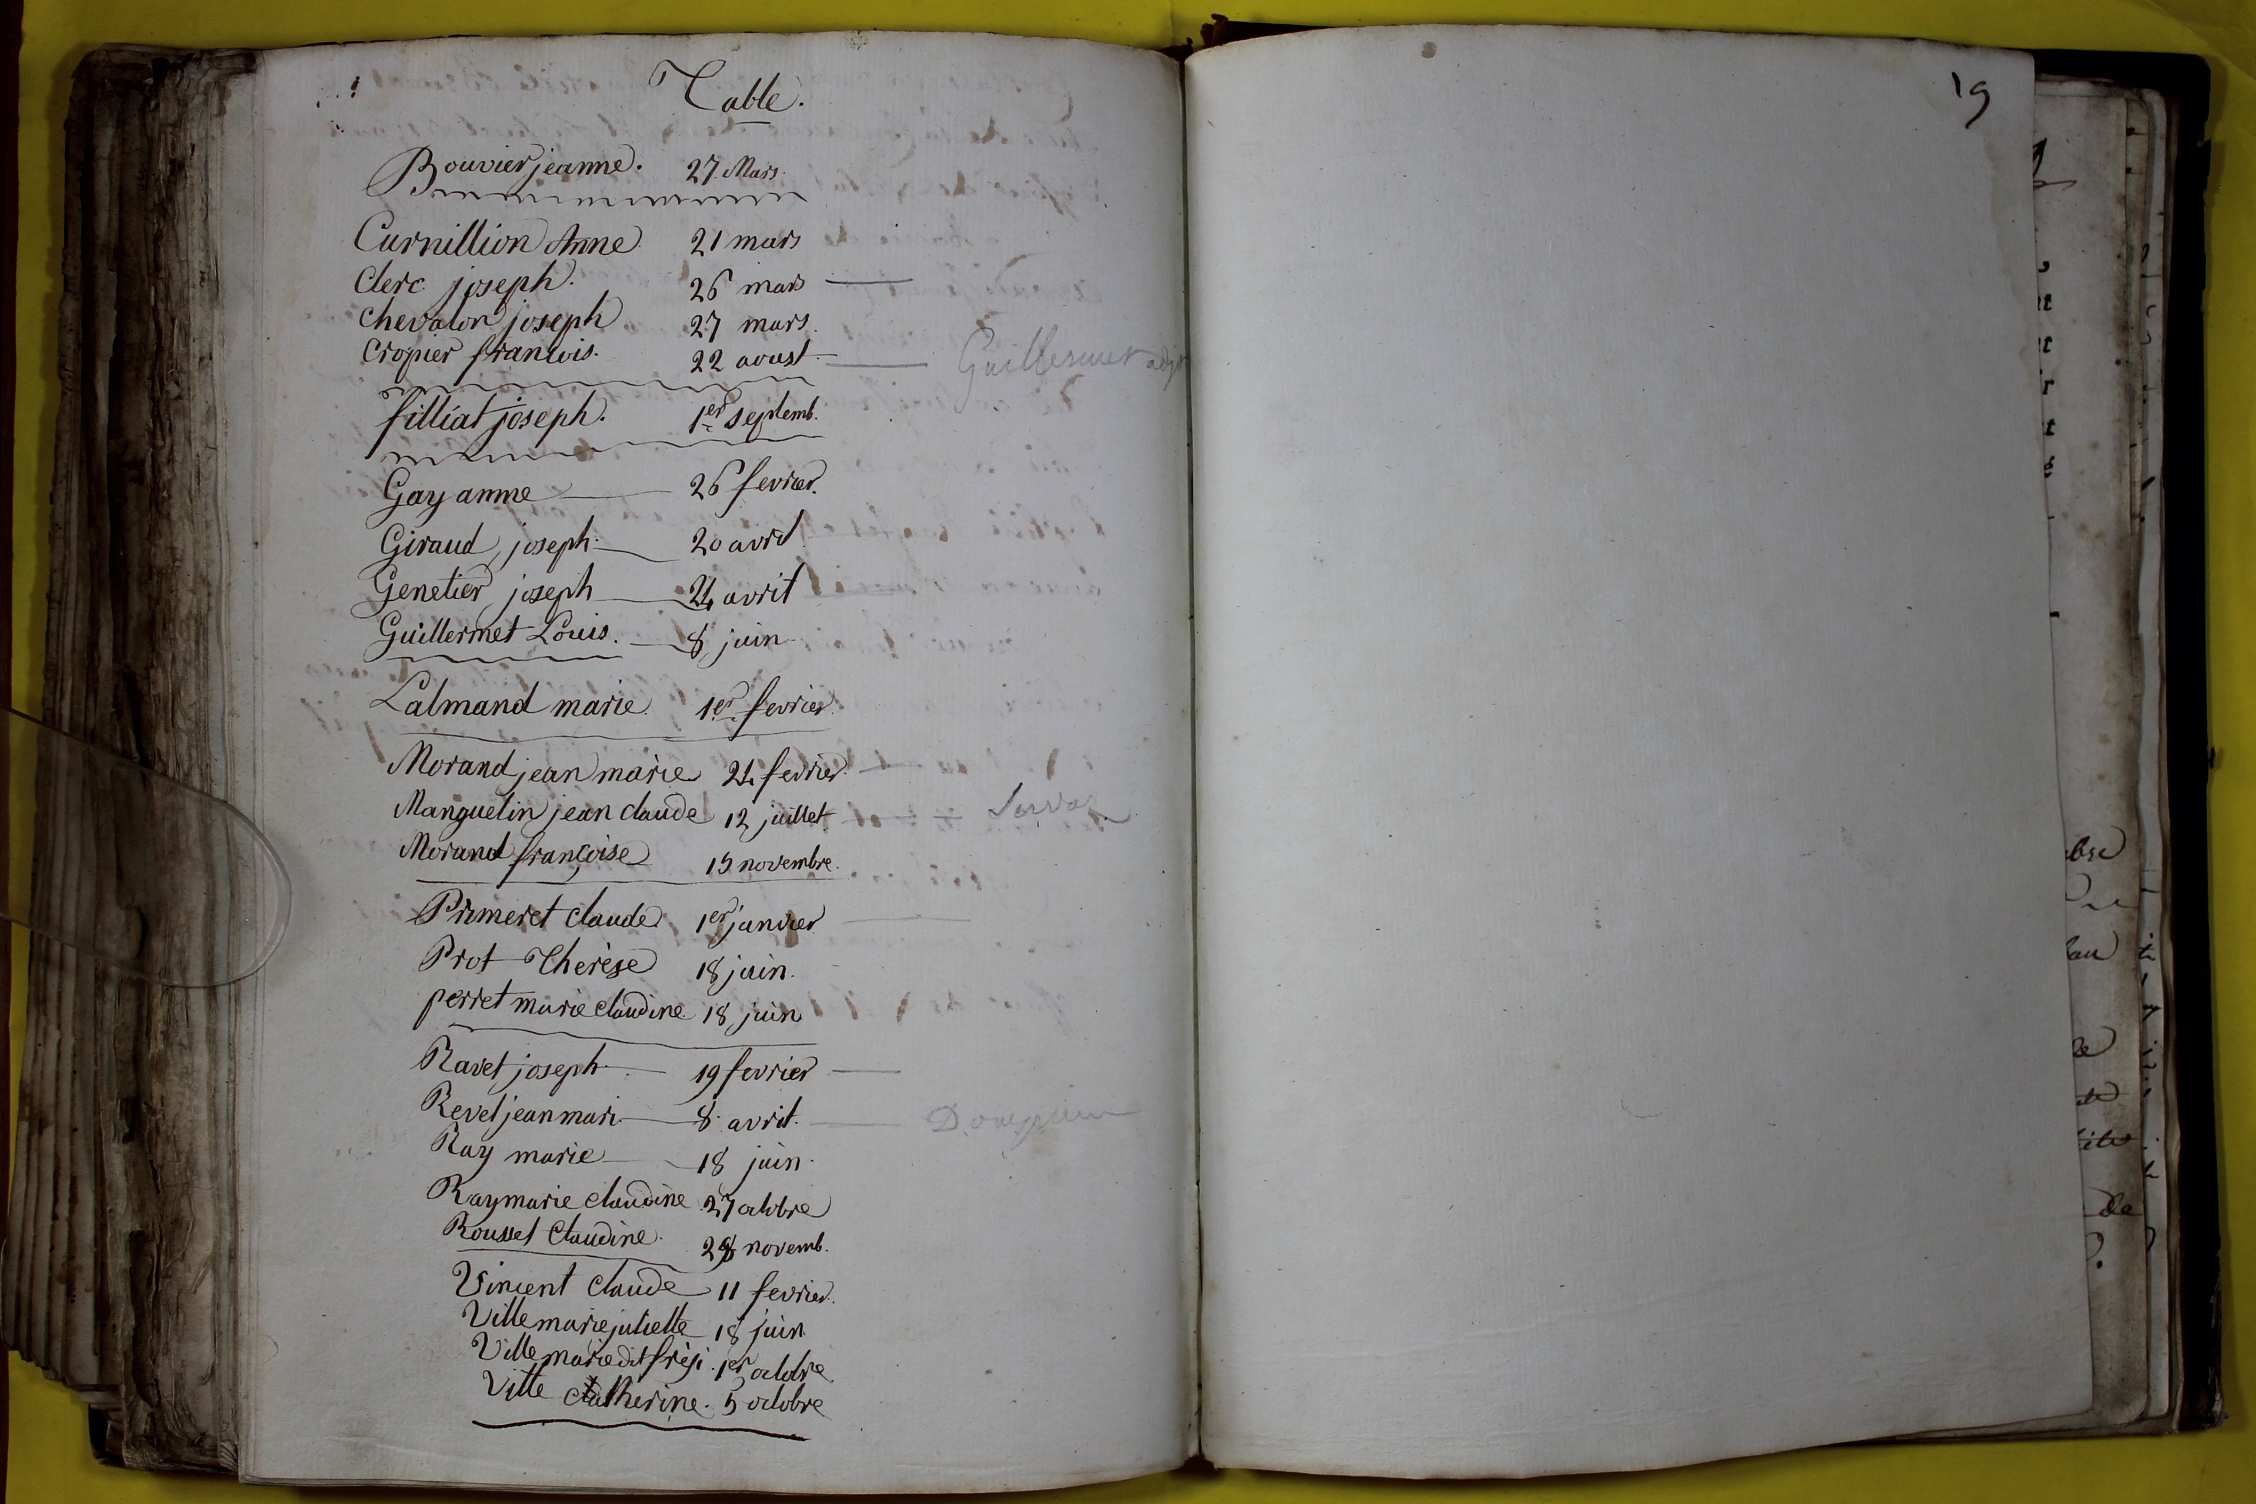 Table.
Bouvier jeanne. 27. Mars.
Curnillion Anne 21 mars
Clerc joseph. 26 mars
chevalon joseph 27 mars.
Cropier francois. 22 aoust. Guillermet adjt
filliat joseph. 1er septemb.
Gay anne 26 fevrier.
Giraud joseph. 20 avril
Genetier joseph 24 avril
Guillermet Louis. 8 juin
Lalmand marie 1er fevrier
Morand jean marie 24 fevrier
Manguelin jean claude 12 juillet
Morand françoise 15 novembre.
Primeret claude 1er janvier
Prot Therèse 18 juin.
perret marie claudine 18 juin
Ravet joseph 19 fevrier
Revel jean mari 8 avril.
Ray marie 18 juin.
Ray marie claudine 27 octobre
Rousset Claudine. 28 novemb.
Vincent claude 11 fevrier.
Ville marie juliette 18 juin
Ville marie dit frèji. 1er octobre
Ville Catherine. 5 octobre
19